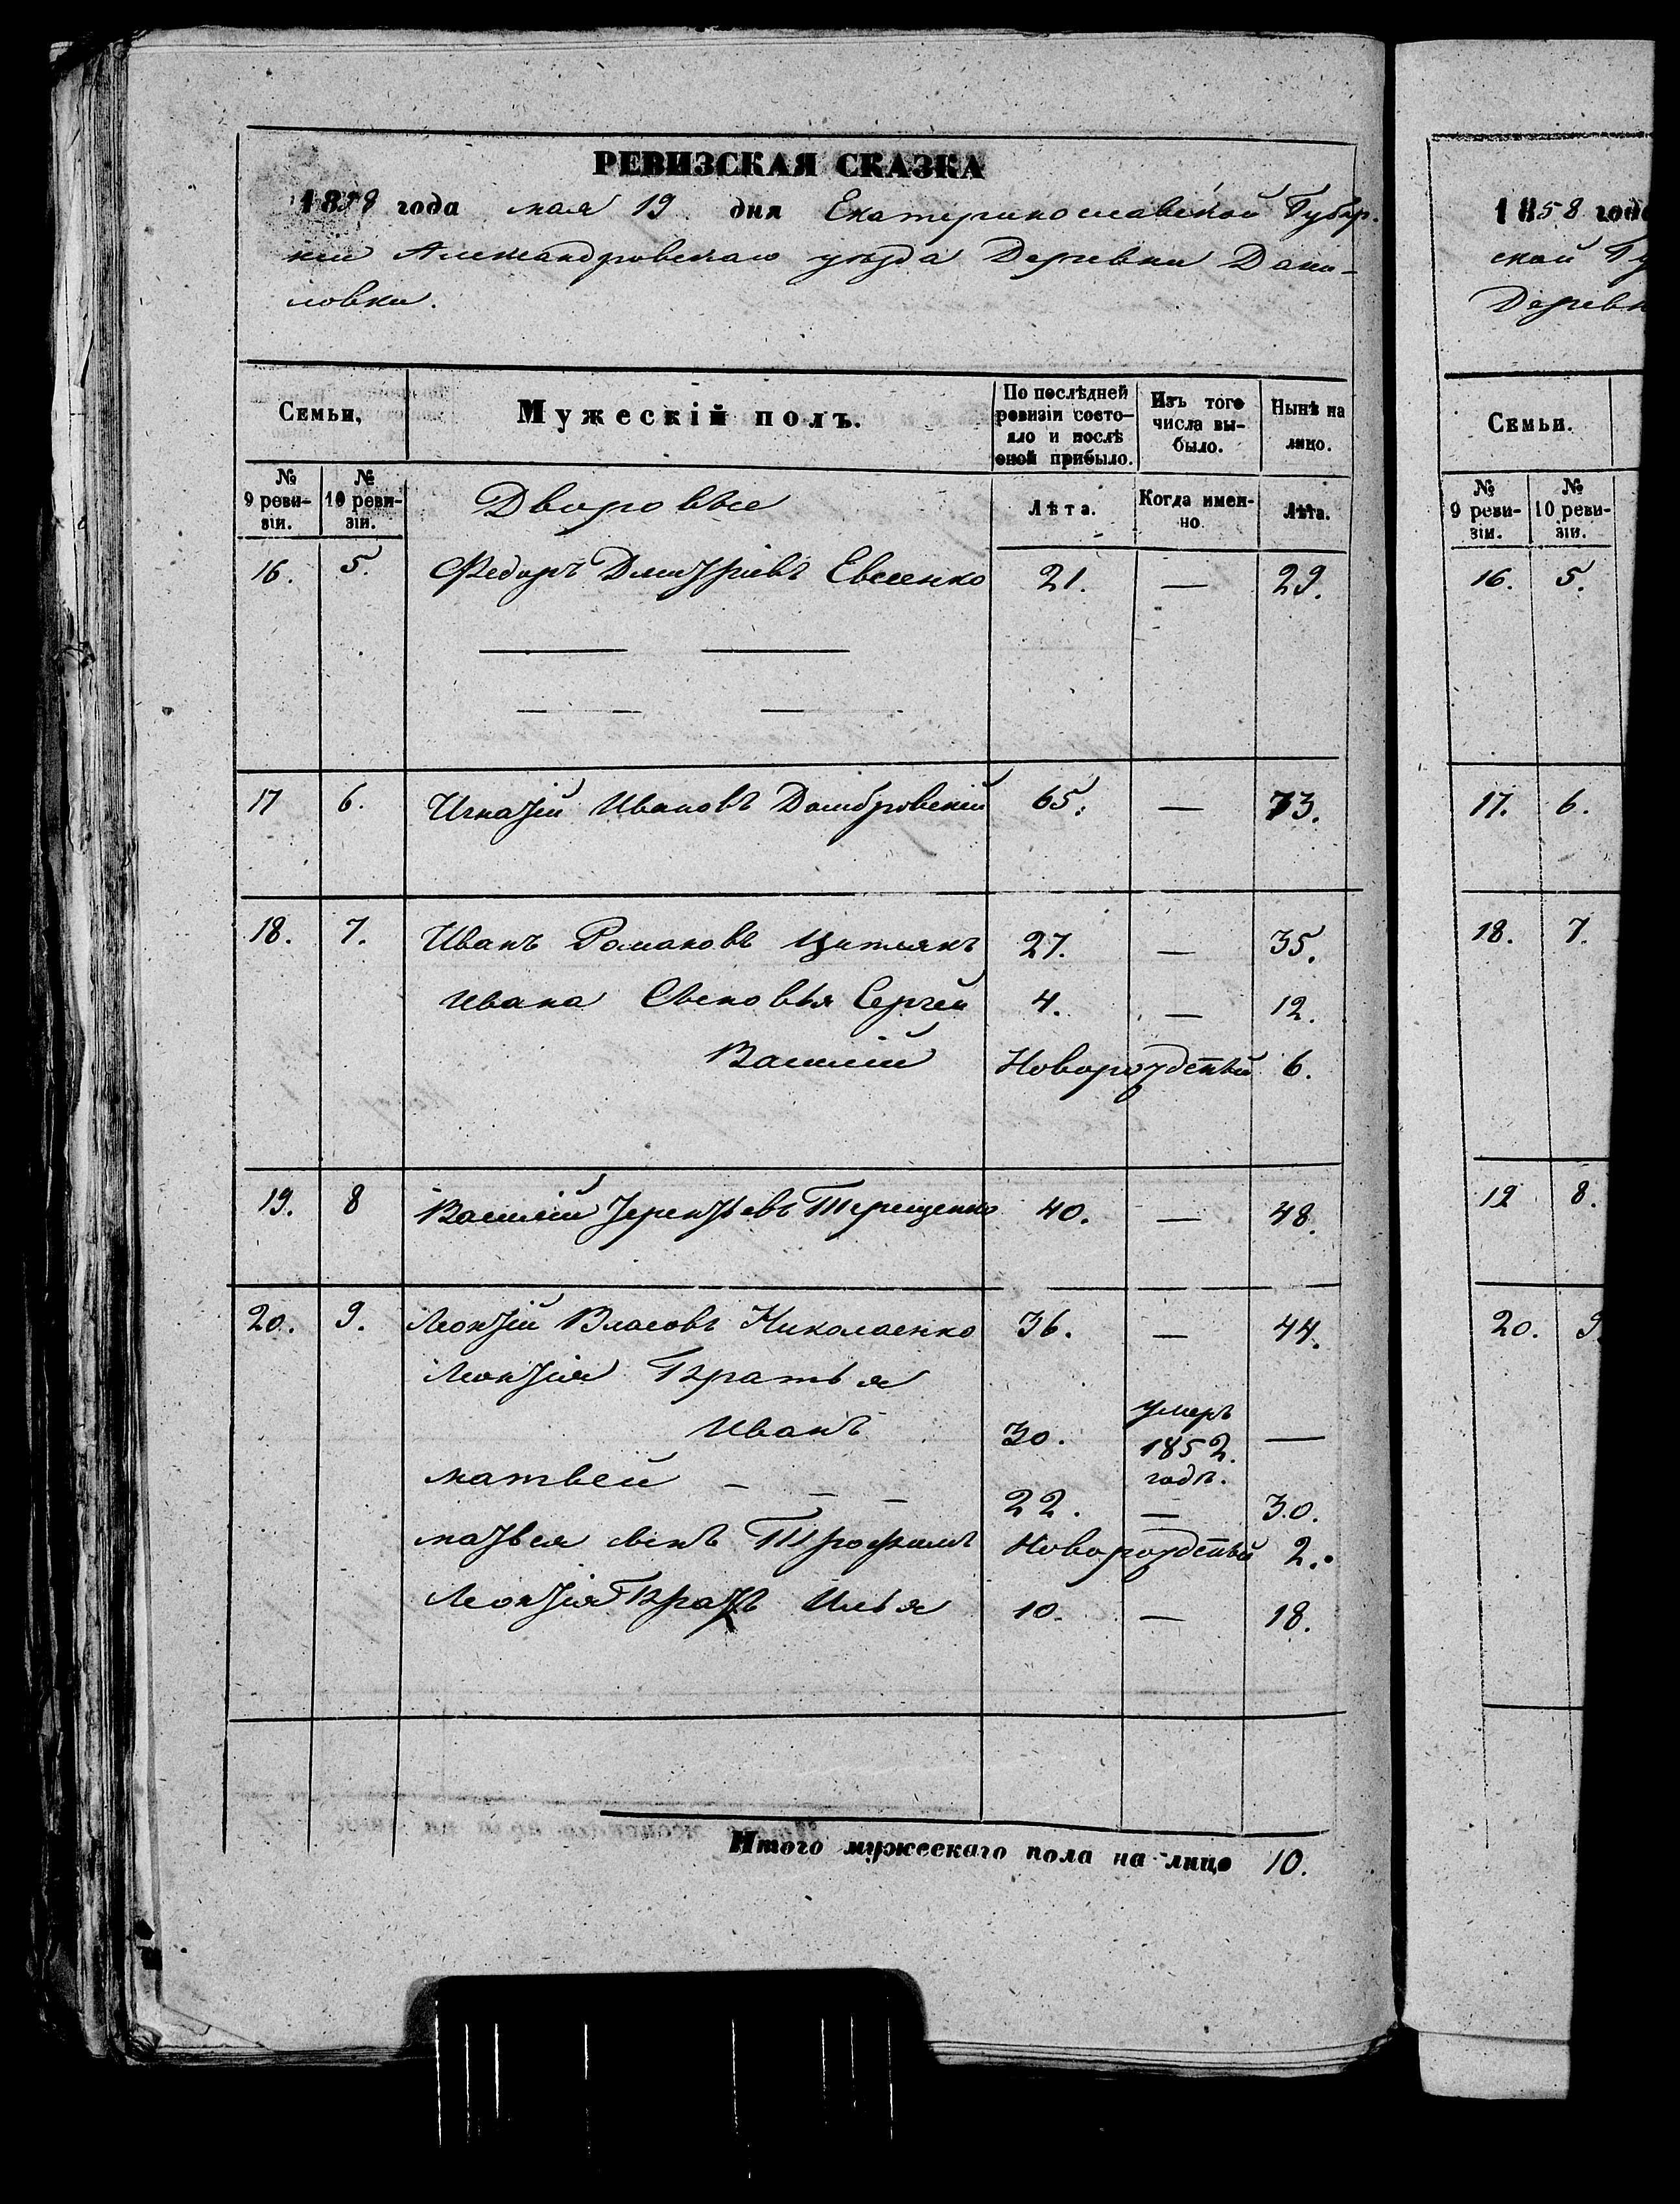 РЕВИЗСКАЯ СКАЗКА
1858 года мая 19 дня Екатеринославской Губер-
нии Александровскаго уезда Деревни Дани-
ловки.
Семьи, Мужескій полъ. По послѣдней ревизіи состо- Изъ того Нынѣ на
яло и послѣ оной прибыло. числа вы-было. лицо.
№ 9 реви-зіи. № 10 реви-зіи. Дворовые Лѣта. Когда имен-но. Лѣта.
16. 5. Федоръ Дмитріевъ Евсеенко 21. — 29.
17 6. Игнатій Ивановъ Домбровскій 65. — 73.
18. 7. Иванъ Романовъ 27. — 35.
Ивана Сыновья Сергей 4. — 12.
Василій Новорожденый 6.
19. 8 Василий Терентьевъ Терещенко 40. — 48.
20. 9. Леонтій Власовъ Николаенко 36. — 44.
Леонтія Братья
Иванъ 30. умеръ 1852. годъ. —
матвей — — — 22. — 30.
матвея сынъ Трофимъ Новорожденый 2.
Леонтія Братъ Илья 10. — 18.
Итого мужескаго пола на лицо 10.
1858 года
ской Гу
Деревн
Семьи.
№ 9 реви-зіи. № 10 реви-зіи.
16. 5.
17. 6.
18. 7.
19 8.
20. 9.